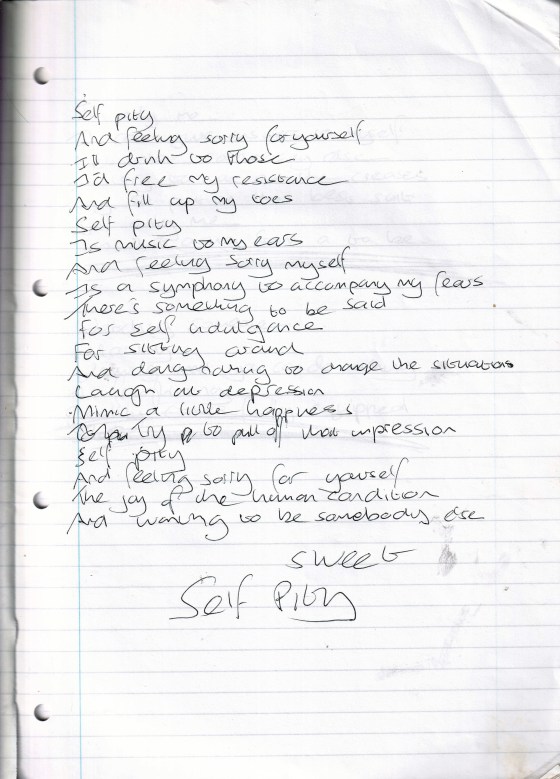 Self pity
And feeling sorry for yourself
I'll drink to those
I'd free my resistance
And fill up my toes
Self pity
Is music to my ears
And feeling sorry myself
Is a symphony to accompany my fears
There's something to be said
For self indulgance
For sitting around
And doing to change the situation
Laugh at depression
Mimic a little happiness
Try to pull off that impression
Self pity
And feeling sorry for yourself
The joy of the human condition
And wanting to be somebody else
Sweet
Self Pity